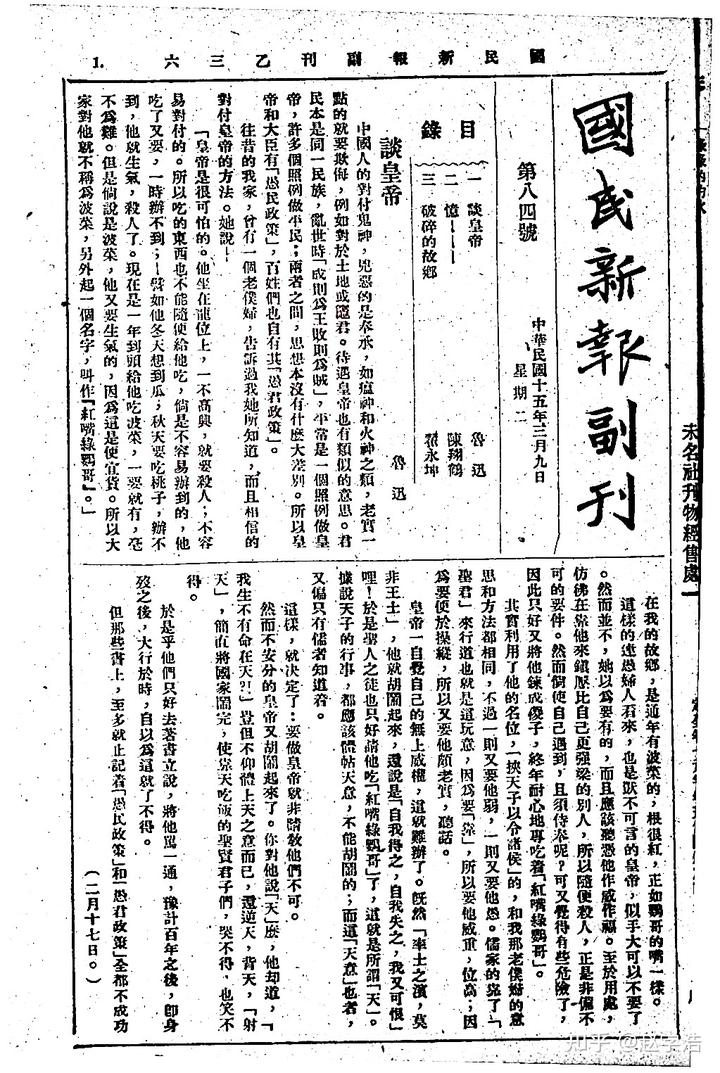 國民新報副刊乙三六
1.
未名社刊物經售處
國民新報副刊
中華民國十五年三月九日
星期二
第八四號
目錄
一 談皇帝 魯迅
二 憶——— 陳翔鶴
三 破碎的故鄉 翟永坤
談皇帝
魯迅
中國人的對付鬼神，兇惡的是奉承，如瘟神和火神之類，老實一
點的就要欺侮，例如對於土地或竈君。待遇皇帝也有類似的意思。君
民本是同一民族，亂世時「成則爲王敗則爲賊」，平常是一個照例做皇
帝，許多個照例做平民；兩者之間，思想本沒有什麽大差別。所以皇
帝和大臣有「愚民政策」，百姓們也自有其「愚君政策」。
往昔的我家，曾有一個老僕婦，告訴過我她所知道，而且相信的
對付皇帝的方法。她說——
「皇帝是很可怕的。他坐在龍位上，一不高興，就要殺人；不容
易對付的。所以吃的東西也不能隨便給他吃，倘是不容易辦到的，他
吃了又要，一時辦不到；——譬如他冬天想到瓜；秋天要吃桃子，辦不
到，他就生氣，殺人了。現在是一年到頭給他吃波菜，一要就有，毫
不爲難。但是倘說是波菜，他又要生氣的，因爲這是便宜貨。所以大
家對他就不稱爲波菜，另外起一個名字，叫作『紅嘴綠鸚哥』。」
在我的故鄉，是通年有波菜的；根很紅，正如鸚哥的嘴一樣。
這樣的連愚婦人看來，也是呆不可言的皇帝，似乎大可以不要了
。然而並不，她以爲要有的，而且應該聽憑他作威作福。至於用處，
仿彿在靠他來鎮壓比自己更强梁的別人，所以隨便殺人，正是非備不
可的要件。然而倘使自己遇到，且須侍奉呢？可又覺得有些危險了，
因此只好又將他鍊成傻子，終年耐心地專吃着「紅嘴綠鸚哥」。
其實利用了他的名位，「挾天子以令諸侯」的，和我那老僕婦的意
思和方法都相同，不過一則又要他弱，一則又要他愚。儒家的靠了「
聖君」來行道也就是這玩意，因爲要「靠」，所以要他威重，位高；因
爲要便於操縱，所以又要他頗老實，聽話。
皇帝一自覺自己的無上威權，這就難辦了。旣然「率土之濱，莫
非王土」，他就胡鬧起來，還說是「自我得之，自我失之，我又何恨」
哩！於是聖人之徒也只好請他吃「紅嘴綠鸚哥」了，這就是所謂「天」。
據說天子的行事，都應該體帖天意，不能胡鬧的；而這「天意」也者，
又偏只有儒者知道着。
這樣，就決定了：要做皇帝就非請敎他們不可。
然而不安分的皇帝又胡鬧起來了。你對他說「天」麽，他却道，「
我生不有命在天？！」豈但不仰體上天之意而已，還逆天，背天，「射
天」，簡直將國家鬧完，使靠天吃飯的聖賢君子們，哭不得，也笑不
得。
於是乎他們只好去著書立說，將他罵一通，豫計百年之後，卽身
歿之後，大行於時，自以爲這就了不得。
但那些書上，至多就止記着「愚民政策」和「愚君政策」全都不成功
（二月十七日。）
知乎 @赵学浩